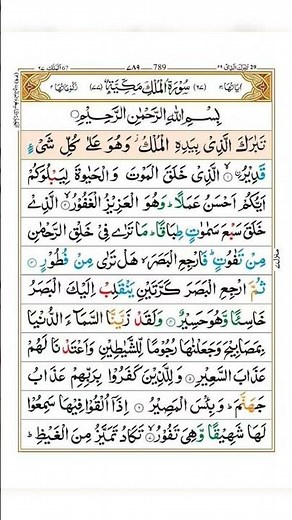 ٧٨٩ 789
سُوْرَةُ الْمُلْكِ مَكِّيَّةٌ
بِسْمِ اللهِ الرَّحْمٰنِ الرَّحِيْمِ
تَبٰرَكَ الَّذِىْ بِيَدِهِ الْمُلْكُ وَهُوَ عَلٰى كُلِّ شَىْءٍ
قَدِيْرُۨ ۙ الَّذِىْ خَلَقَ الْمَوْتَ وَالْحَيٰوةَ لِيَبْلُوَكُمْ
اَيُّكُمْ اَحْسَنُ عَمَلًا ؕ وَهُوَ الْعَزِيْزُ الْغَفُوْرُ ۙ الَّذِىْ
خَلَقَ سَبْعَ سَمٰوٰتٍ طِبَاقًا ؕ مَا تَرٰى فِىْ خَلْقِ الرَّحْمٰنِ
مِنْ تَفٰوُتٍ ؕ فَارْجِعِ الْبَصَرَ ۙ هَلْ تَرٰى مِنْ فُطُوْرٍ
ثُمَّ ارْجِعِ الْبَصَرَ كَرَّتَيْنِ يَنْقَلِبْ اِلَيْكَ الْبَصَرُ
خَاسِئًا وَّهُوَ حَسِيْرٌ وَلَقَدْ زَيَّنَّا السَّمَآءَ الدُّنْيَا
بِمَصَابِيْحَ وَجَعَلْنٰهَا رُجُوْمًا لِّلشَّيٰطِيْنِ وَاَعْتَدْنَا لَهُمْ
عَذَابَ السَّعِيْرِ وَلِلَّذِيْنَ كَفَرُوْا بِرَبِّهِمْ عَذَابُ
جَهَنَّمَ ؕ وَبِئْسَ الْمَصِيْرُ اِذَاۤ اُلْقُوْا فِيْهَا سَمِعُوْا
لَهَا شَهِيْقًا وَّهِىَ تَفُوْرُ ۙ تَكَادُ تَمَيَّزُ مِنَ الْغَيْظِ ؕ